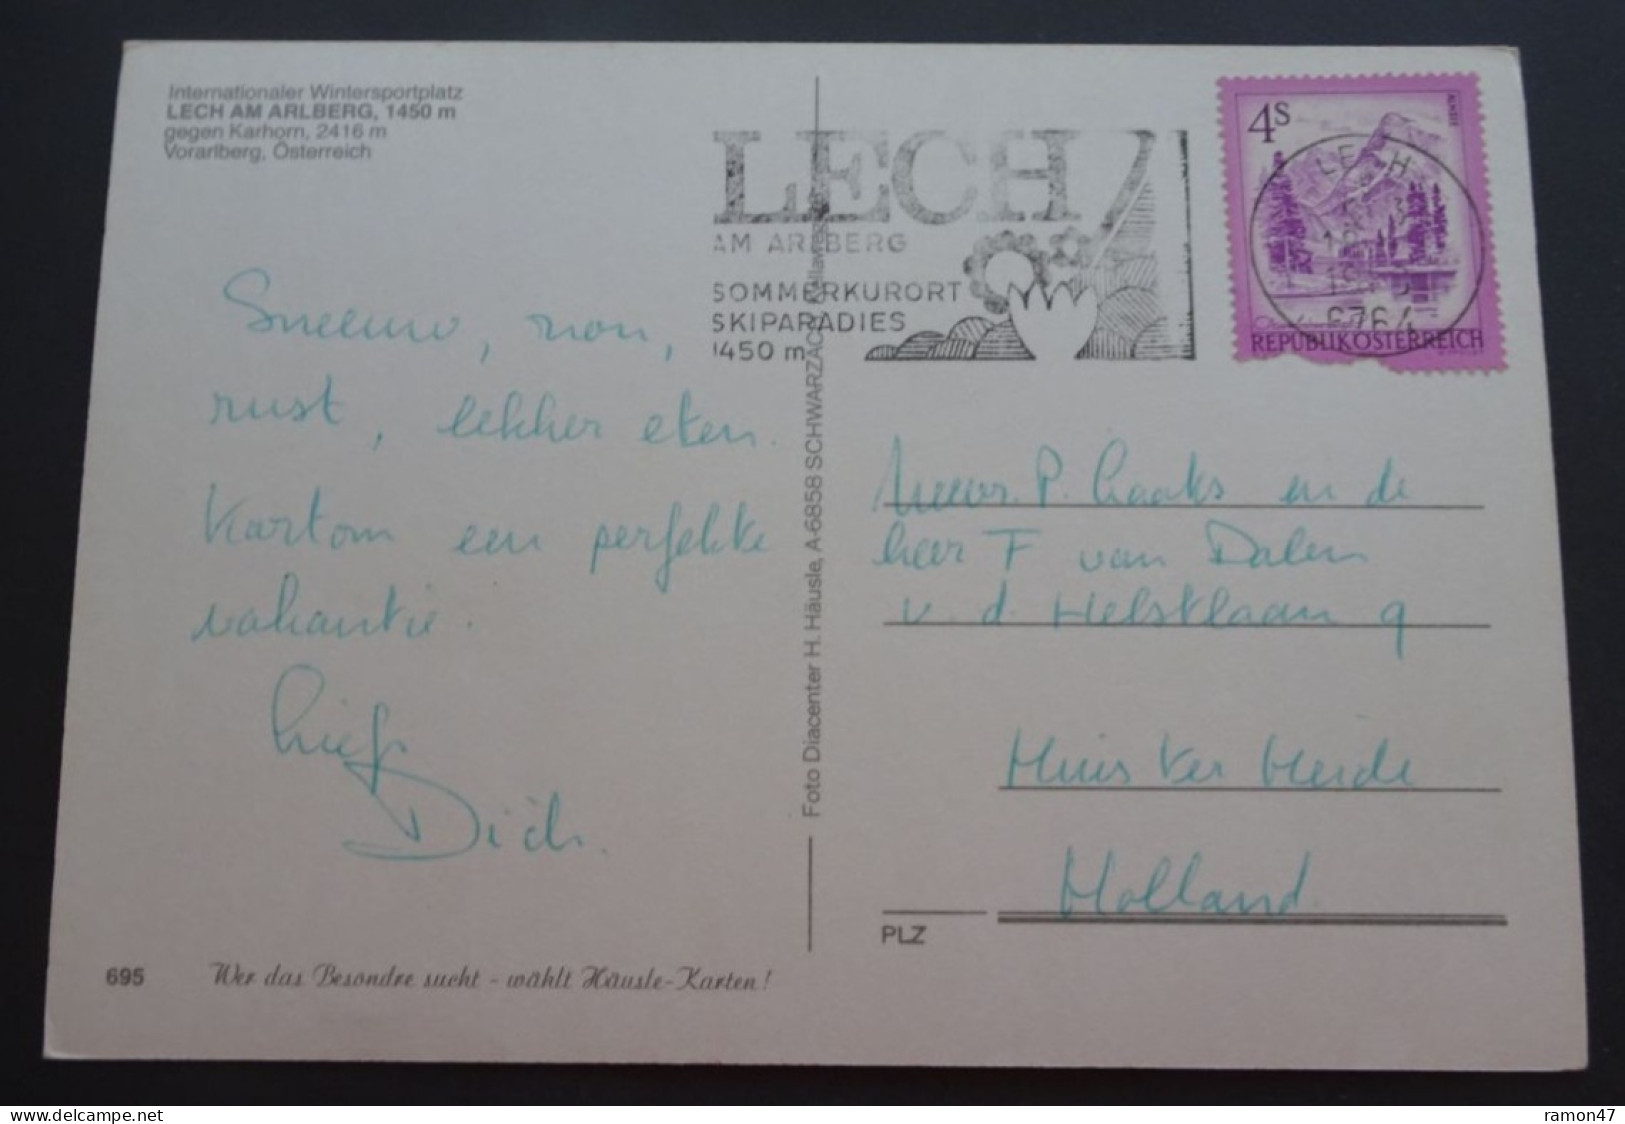 Internationaler Wintersportplatz
LECH AM ARLBERG, 1450 m
gegen Karhorn, 2416 m
Vorarlberg, Österreich
LECH
AM ARLBERG
SOMMERKURORT
SKIPARADIES
1450 m
4S
ALMSEE
LECH
6764
REPUBLIK ÖSTERREICH
Sneeuw, zon,
rust, lekker eten.
Kortom een perfekte
vakantie.
Liefs
Dick.
Foto Diacenter H. Häusle, A-6858 SCHWARZACH
Mevr. P. Haaks en de
heer F van Dalen
v. d. Helstlaan 9
Huis ter Heide
Holland
PLZ
695 Wer das Besondre sucht - wählt Häusle-Karten!
delcampe.net
ramon47